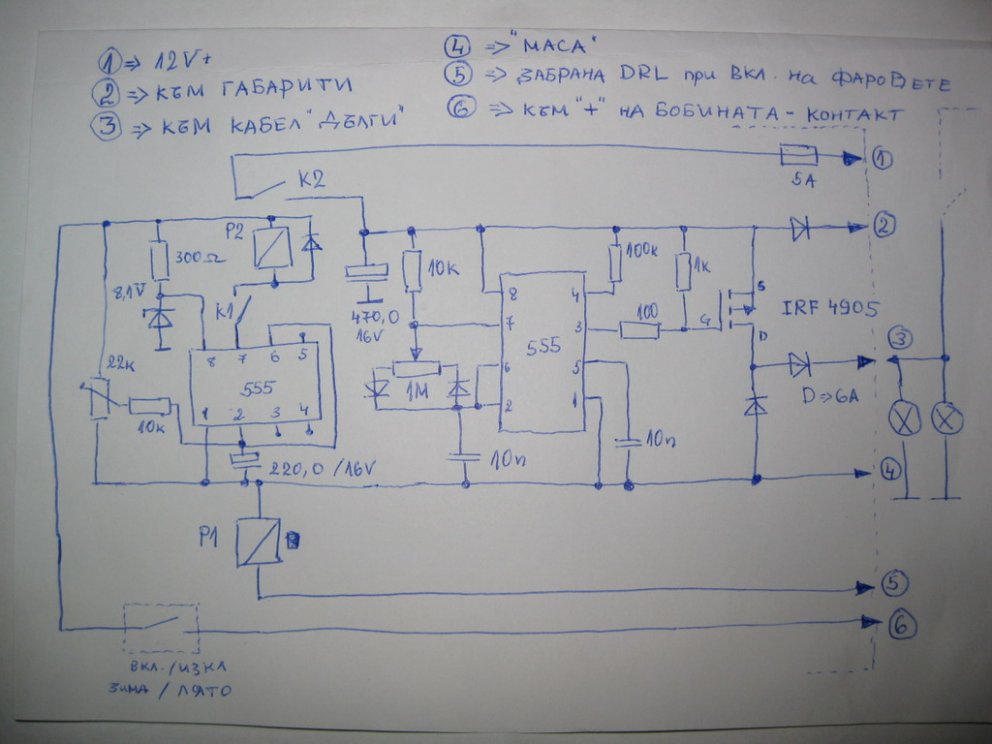 ① ⇒ 12V+
② ⇒ КЪМ ГАБАРИТИ
③ ⇒ КЪМ КАБЕЛ "ДЪЛГИ"
④ ⇒ "МАСА"
⑤ ⇒ ЗАБРАНА DRL при ВКЛ. на ФАРОВЕТЕ
⑥ ⇒ КЪМ "+" НА БОБИНАТА - КОНТАКТ
K2
5A
①
P2
300Ω
8,1V
K1
470,0
16V
10K
100K
1K
②
8
7
6
2
555
4
3
5
1
100
G
S
D
IRF 4905
③
D⇒6A
22K
10K
8
7
6
5
555
1
2
3
4
220,0/16V
1M
10n
10n
④
P1
⑤
⑥
ВКЛ./ИЗКЛ
ЗИМА / ЛЯТО